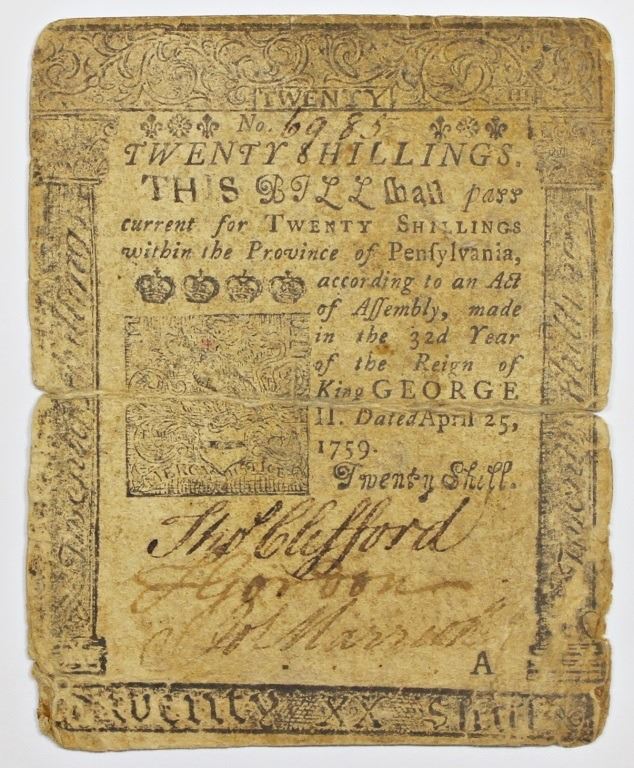 TWENTY
No. 6985
TWENTY SHILLINGS.
THIS BILL shall pass
current for TWENTY SHILLINGS
within the Province of Penſylvania,
according to an Act
of Aſſembly, made
in the 32d Year
of the Reign of
King GEORGE
II. Dated April 25,
1759.
Twenty Shill.
Twenty Shillings
Twenty Shillings
Thos Clifford
Gordon
A
Twenty XX Shill